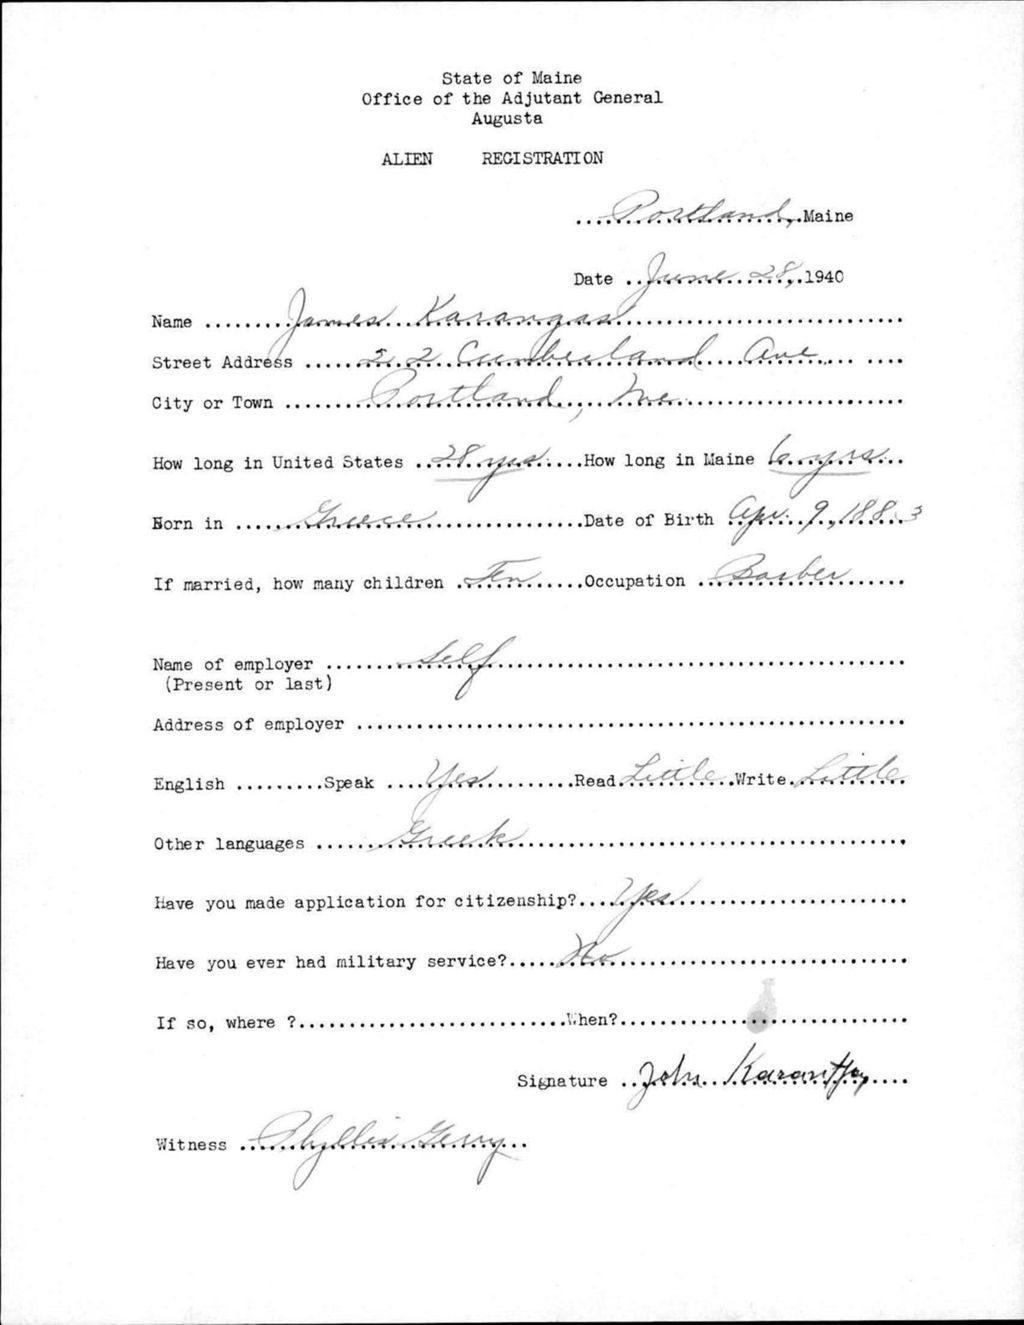 State of Maine
Office of the Adjutant General
Augusta
ALIEN REGISTRATION
Portland, Maine
Date June 28, 1940
Name James Karangas
Street Address 22 Cumberland Ave
City or Town Portland, Me.
How long in United States 28 yrs How long in Maine 6 yrs
Born in Greece Date of Birth Apr. 9, 1883
If married, how many children Ten Occupation Barber
Name of employer Self
(Present or last)
Address of employer
English Speak Yes Read Little Write Little
Other languages Greek
Have you made application for citizenship? Yes
Have you ever had military service? No
If so, where ? When?
Signature John
Witness Phyllis Gerry